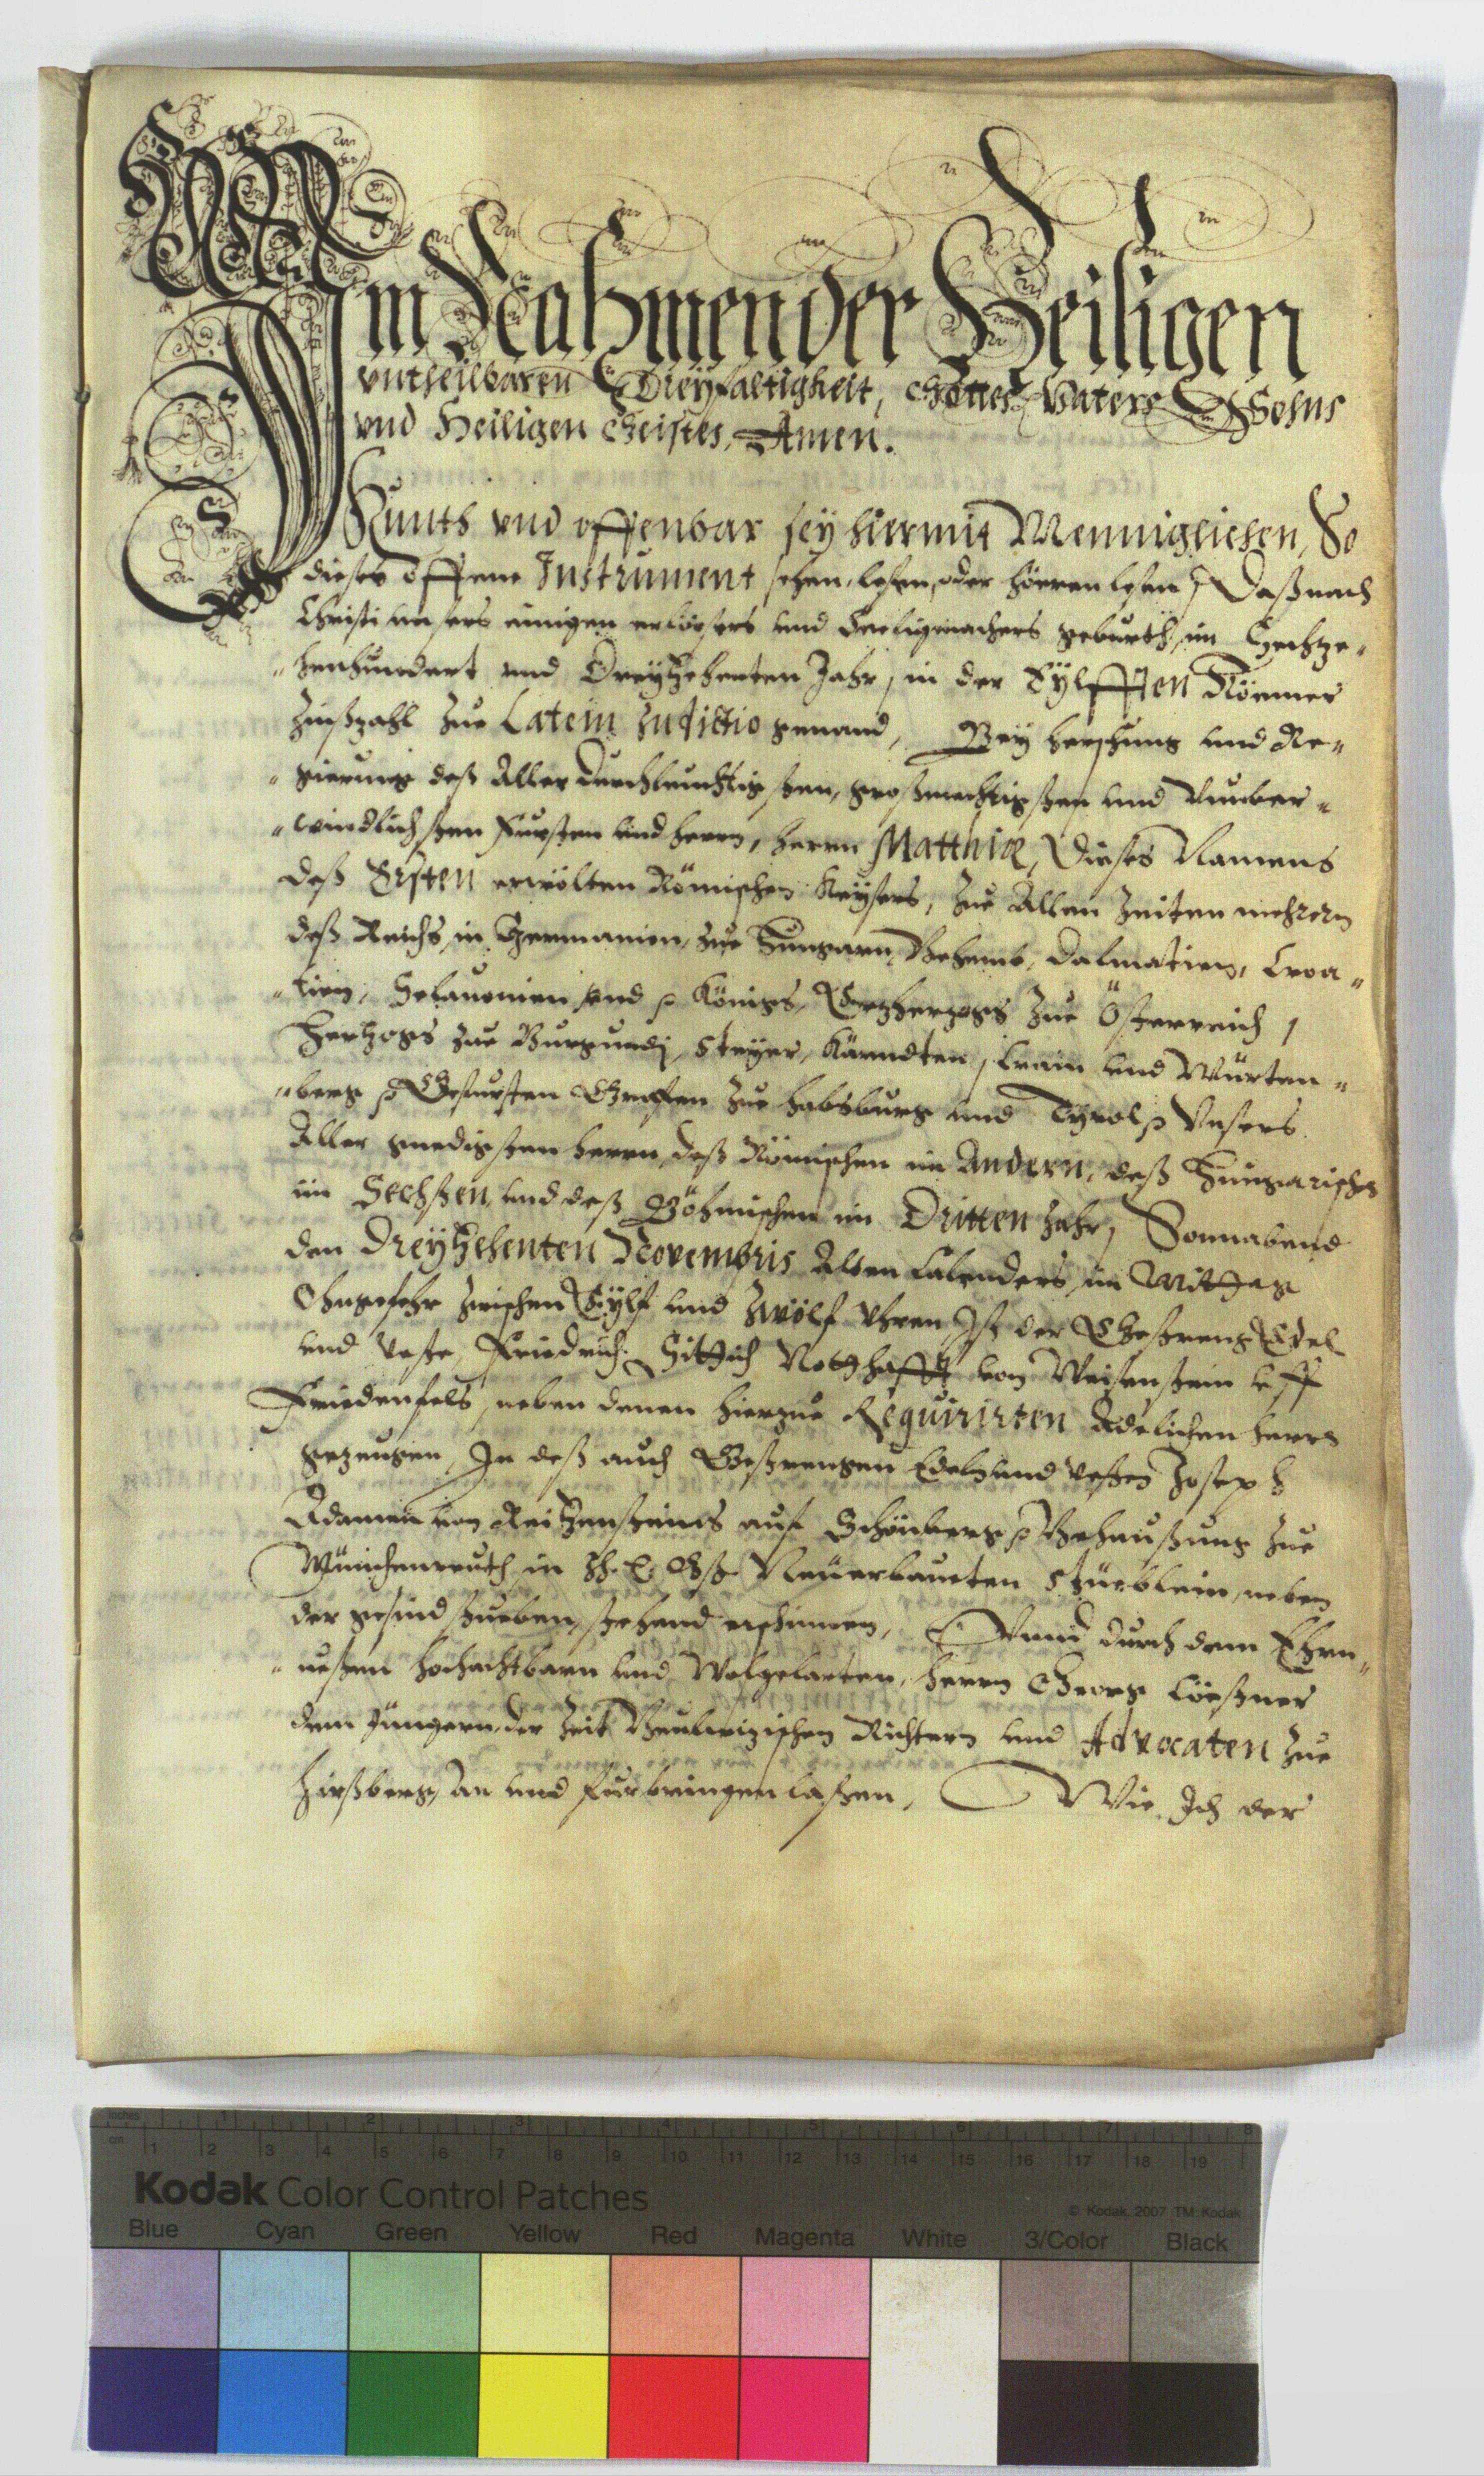 Im Nahmen der Heiligen
vntheilbaren Dreyfaltigheit, Gottes Vaters Sohns
vnd Heiligen Geistes, Amen.
Kunth vnd offenbar sey hiermit Menniglichen, So
dieses offene Instrument sehen, lesen, oder hören lesen, Daß nach
Christi unsers einigen erlösers und Seeligmachers geburth, im Sechze„
„henhundert und Dreyzehenten Jahr, in der Eylfften Römer
Zinßzahl zue Latein Indictio genand, Bey herschung und Re„
„gierung deß Aller durchleuchtigsten, großmechtigsten und Vnuber„
„windlichsten Fursten und herrn, herrn Matthiæ, dieses Namens
deß Ersten erwölten Römischen Keysers, zue Allen Zeiten mehrern
deß Reichs, in Germanien, zue Hungarn, Behemb, Dalmatien, Croa„
„tien, Sclauonien und Königs, Ertzherzogs zue Österreich,
Hertzogs zue Burgundj, Steyer, Kärndten, Crain und Würten„
„berg Gefursten Graffen zue habsburg und Tyrol Vnsers
Aller gnedigsten herrn, deß Römischen im Andern, deß Hungarischen
im Sechsten, und deß Böhmischen im Dritten Jahr, Sonnabend
den Dreyzehenten Novembris Alten Calenders, im Mittag
Ohngefehr zwischen Eylf und Zwölf Uhren, Ist der Gestreng Edel
und Veste, Friedrich Sittich Notthafft von Weisenstein uff
Friedenfels, neben denen hierzue Requirirten Adelichen herrn
gezeugen, In deß auch Gestrengen Edeln und Vesten Joseph
Adamen von Reitzensteins auf Schönberg Behaußung zue
Münchenreuth, in Neuerbauten Stüeblein, neben
der gesind stueben, stehend erschienen, Vnnd durch dem Ehrn„
„uesten hochachtbarn und Wolgelarten, herrn Georg Lößner
dem Jüngern, der Zeit Richtern und Advocaten zue
Hirßberg, An und furbringen lassen, Wie Ich der
inches 1 2 3 4 5 6 7 8
cm 1 2 3 4 5 6 7 8 9 10 11 12 13 14 15 16 17 18 19
Kodak Color Control Patches
© Kodak, 2007 TM: Kodak
Blue Cyan Green Yellow Red Magenta White 3/Color Black